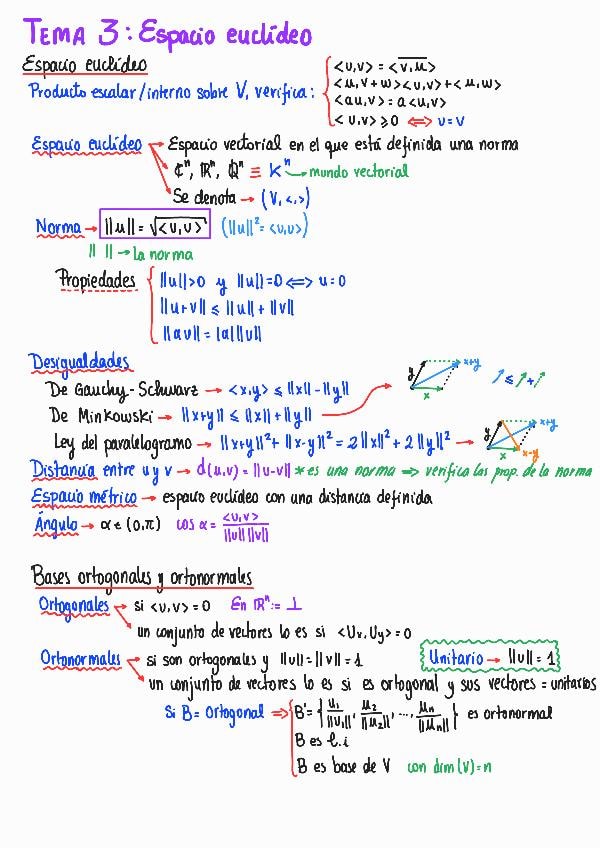 TEMA 3: Espacio euclídeo
Espacio euclídeo
Producto escalar/interno sobre V, verifica:
<u,v> = <\overline{v,u}>
<u,v+w><u,v>+<u,w>
<au,v> = a<u,v>
<u,v> ≥ 0 ⟺ u=v
Espacio euclídeo → Espacio vectorial en el que está definida una norma
ℂⁿ, ℝⁿ, ℚⁿ ≡ Kⁿ → mundo vectorial
Se denota → (V, <,>)
Norma → ||u|| = √<u,u> (||u||² = <u,u>)
|| || → la norma
Propiedades
||u||>0 y ||u||=0 ⟺ u=0
||u+v|| ≤ ||u|| + ||v||
||av|| = |a| ||v||
Desigualdades
De Gauchy-Schwarz → <x,y> ≤ ||x|| - ||y||
De Minkowski → ||x+y|| ≤ ||x|| + ||y||
y x x+y ↗ ≤ ↗ + ↗
Ley del paralelogramo → ||x+y||² + ||x-y||² = 2||x||² + 2||y||² →
y x x+y x-y
Distancia entre u y v → d(u,v) = ||u-v|| * es una norma ⟹ verifica las prop. de la norma
Espacio métrico → espacio euclídeo con una distancia definida
Ángulo → α ∈ (0,π) cos α = <u,v> / ||u|| ||v||
Bases ortogonales y ortonormales
Ortogonales → si <u,v> = 0 En ℝⁿ := ⊥
un conjunto de vectores lo es si <Uv,Uy> = 0
Ortonormales → si son ortogonales y ||u|| = ||v|| = 1
Unitario → ||u|| = 1
un conjunto de vectores lo es si es ortogonal y sus vectores = unitarios
Si B = Ortogonal ⟹ B' = {u₁/||u₁||, u₂/||u₂||, ..., uₙ/||uₙ||} es ortonormal
B es l.i
B es base de V con dim(V)=n